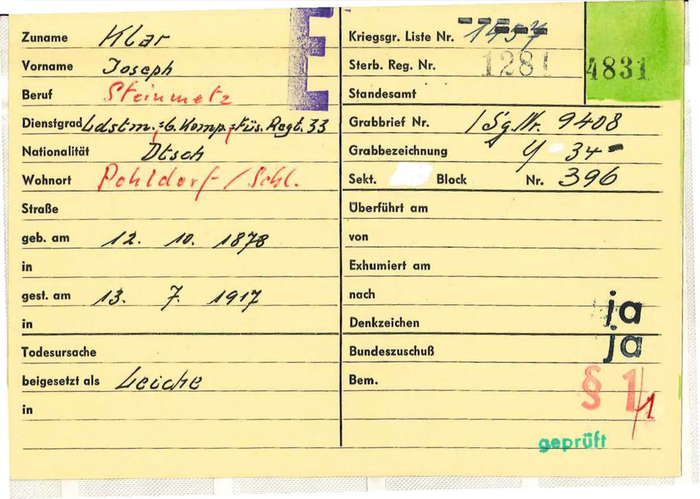 E
Zuname Klar
Vorname Joseph
Beruf Steinmetz
Dienstgrad Ldstm. = 6. Komp. = Füs. Regt. 33
Nationalität Dtsch
Wohnort Pohldorf / Schl.
Straße
geb. am 12. 10. 1878
in
gest. am 13. 7. 1917
in
Todesursache
beigesetzt als Leiche
in
Kriegsgr. Liste Nr.
Sterb. Reg. Nr. 1281
4831
Standesamt
Grabbrief Nr. / Sg. Nr. 9408
Grabbezeichnung 34 -
Sekt. Block Nr. 396
Überführt am
von
Exhumiert am
nach ja
Denkzeichen
Bundeszuschuß ja
Bem. § 1 /1
geprüft